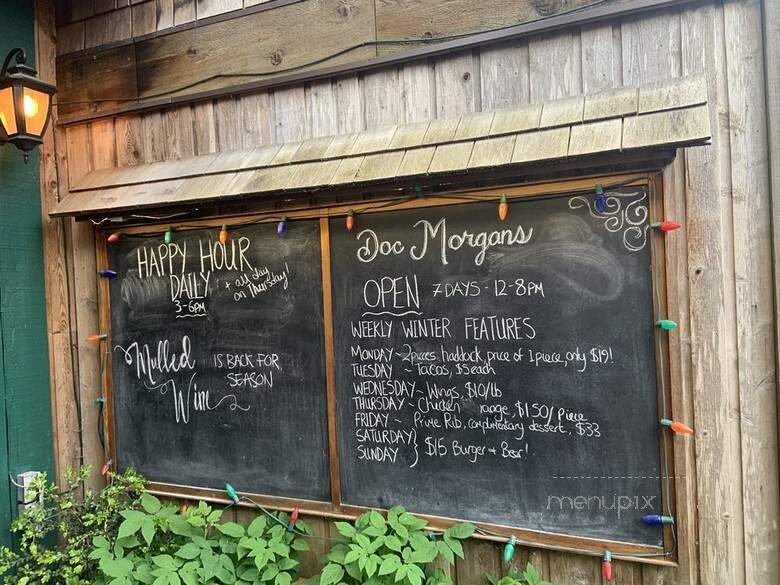 HAPPY HOUR
DAILY + all day
3-6PM on Thursday!
Mulled IS BACK FOR
Wine SEASON
Doc Morgans
OPEN 7 DAYS - 12-8PM
WEEKLY WINTER FEATURES
MONDAY ~ 2 pieces, haddock, price of 1 piece, only $19!
TUESDAY ~ Tacos, $5 each
WEDNESDAY ~ Wings, $10/lb
THURSDAY ~ Chicken range, $1.50/piece
FRIDAY ~ Prime Rib, complimentary dessert, $33
SATURDAY }
SUNDAY } $15 Burger + Beer!
menupix